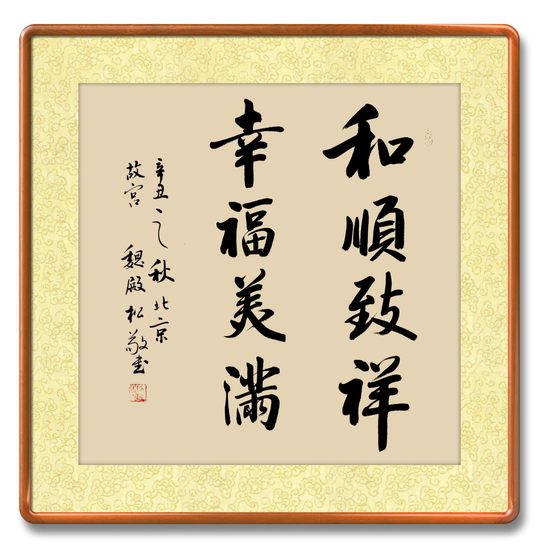 和順致祥
幸福美滿
辛丑之秋北京
故宫 魏殿松敬書